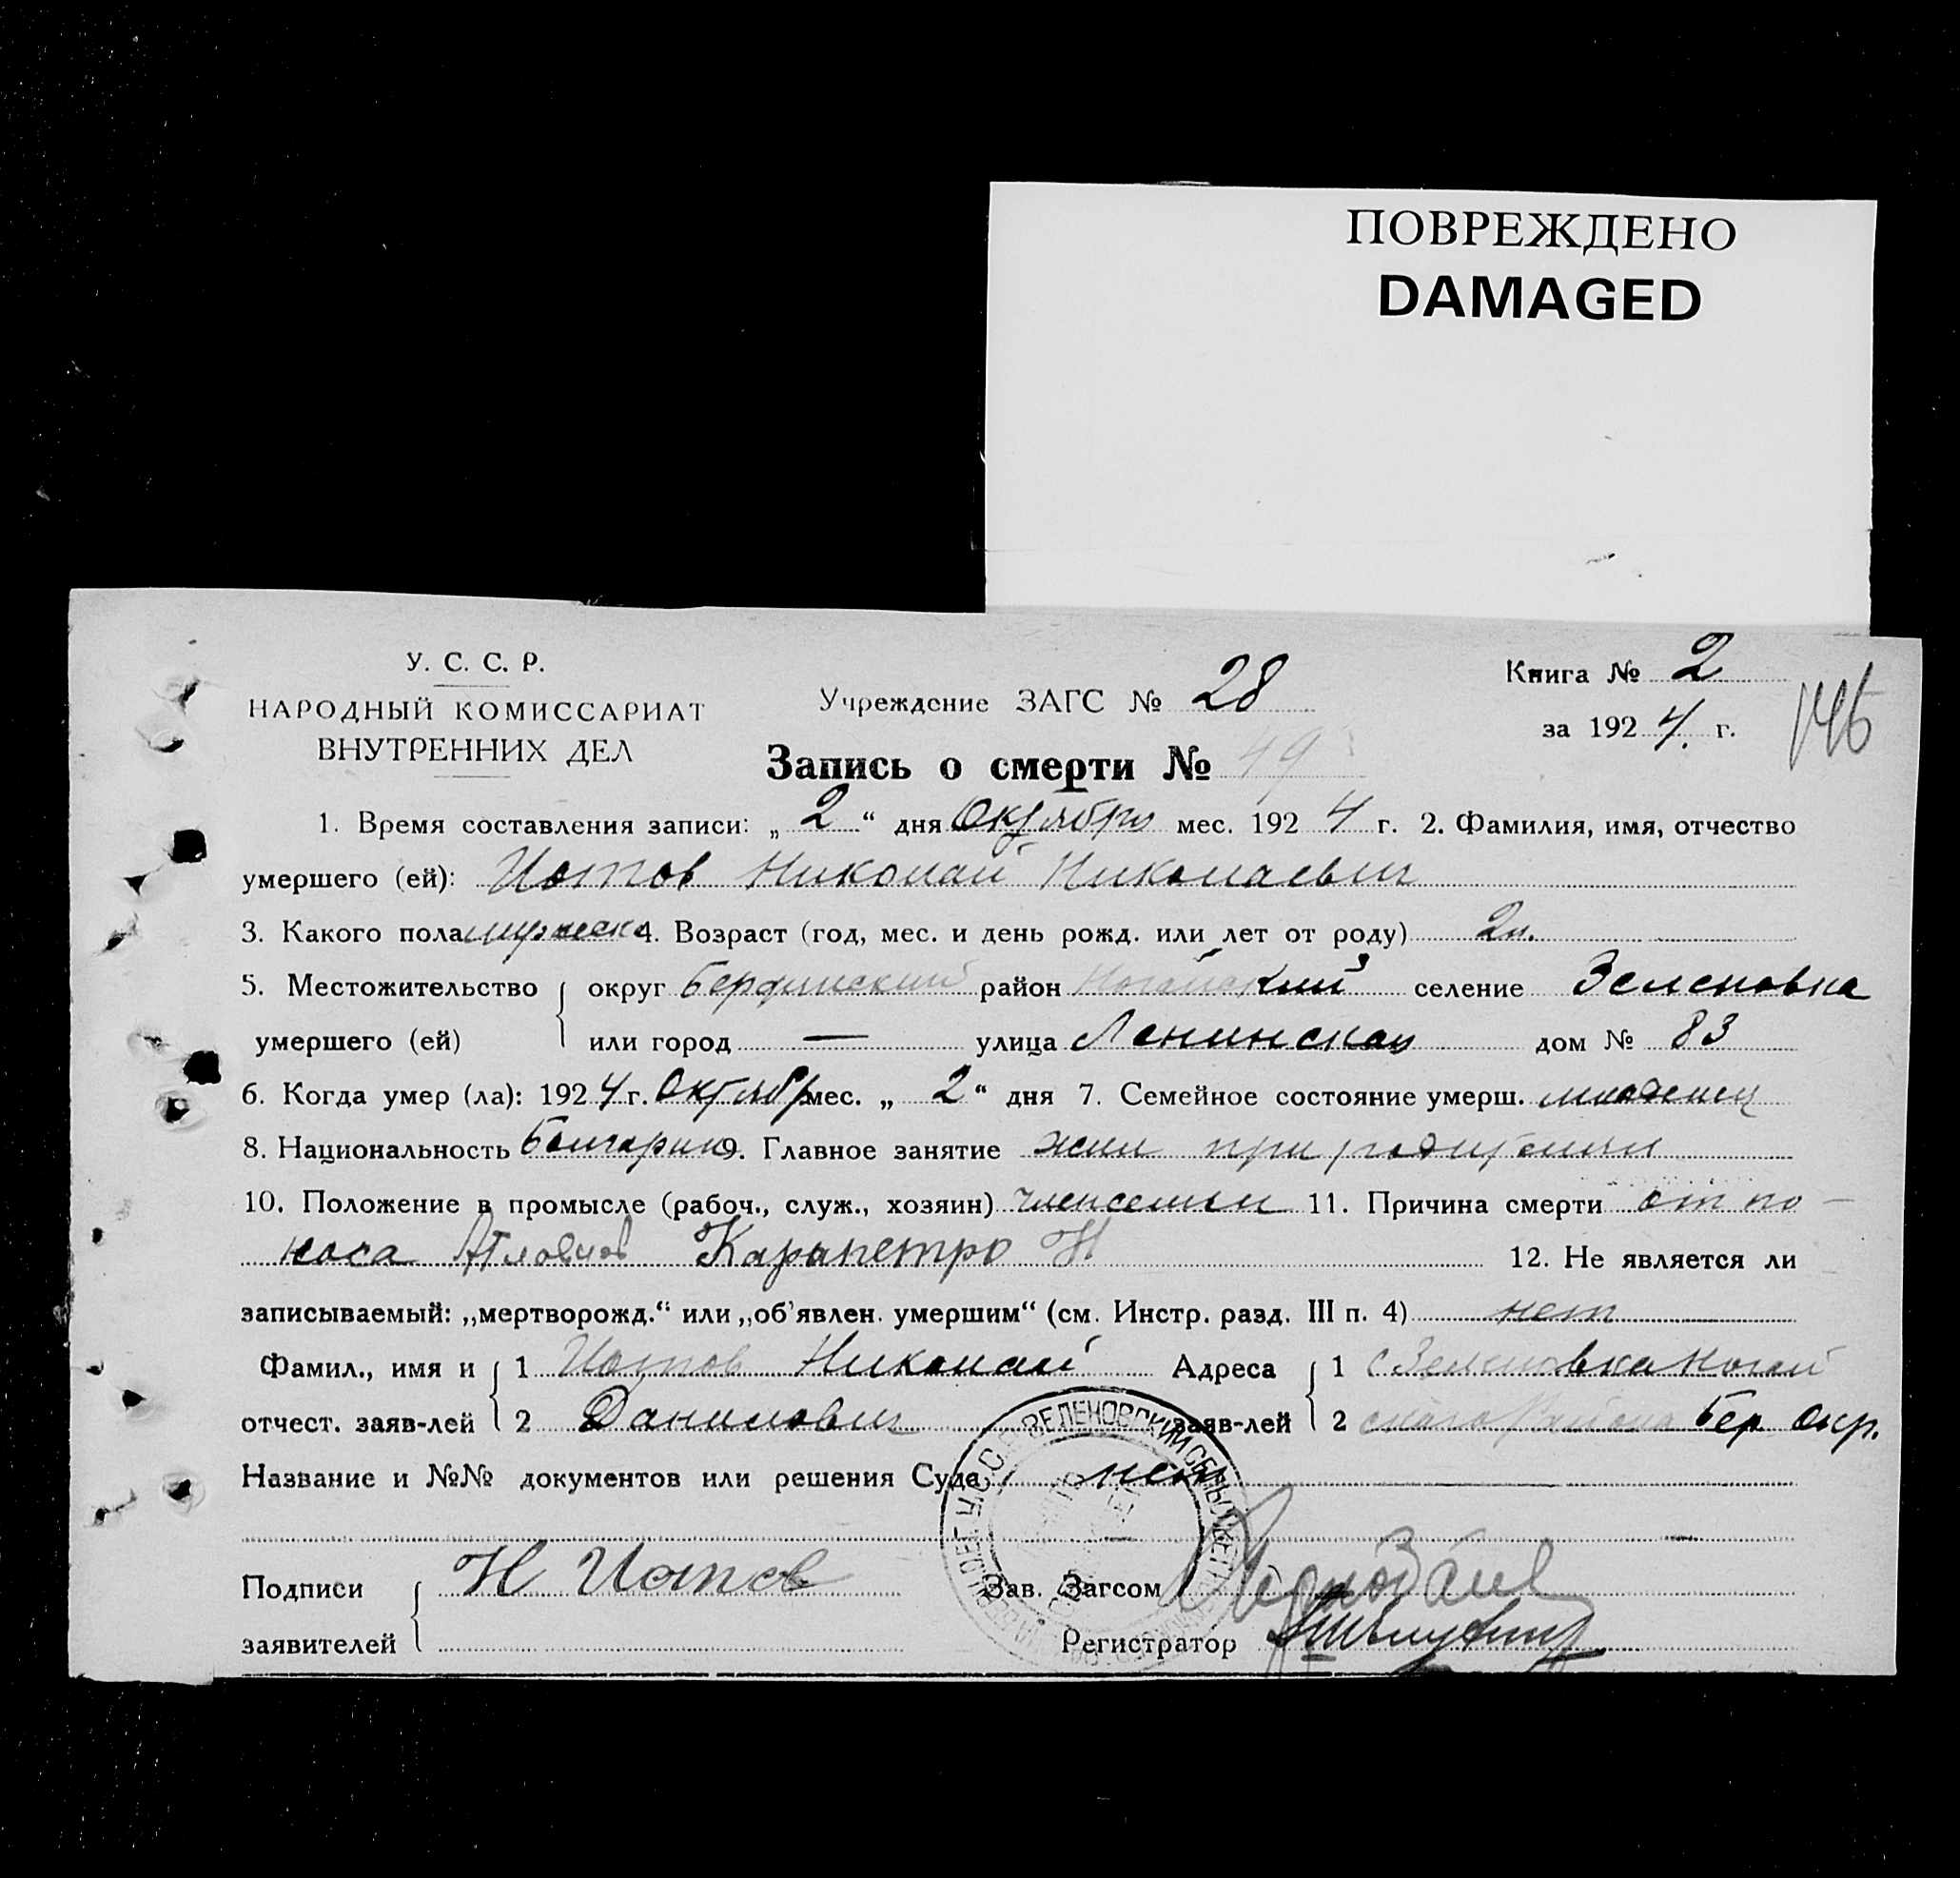 ПОВРЕЖДЕНО
DAMAGED
У. С. С. Р.
НАРОДНЫЙ КОМИССАРИАТ
ВНУТРЕННИХ ДЕЛ
Учреждение ЗАГС № 28
Книга № 2
за 1924 г.
146
Запись о смерти № 49
1. Время составления записи: „2“ дня Октября мес. 1924 г. 2. Фамилия, имя, отчество
умершего (ей): Иотов Николай Николаевич
3. Какого пола мужеска 4. Возраст (год, мес. и день рожд. или лет от роду) 2
5. Местожительство { округ Бердянский район Ногайский селение Зеленовка
умершего (ей) или город — улица Ленинская дом № 83
6. Когда умер (ла): 1924 г. Октябр мес. „2“ дня 7. Семейное состояние умерш. младенец
8. Национальность Болгарин 9. Главное занятие жил при родителях
10. Положение в промысле (рабоч., служ., хозяин) член семьи 11. Причина смерти от по-
носа Карапетро Н
12. Не является ли
записываемый: „мертворожд.“ или „об'явлен. умершим“ (см. Инстр. разд. III п. 4) нет
Фамил., имя и { 1 Иотов Николай Адреса { 1 с Зеленовка Ногай
отчест. заяв-лей 2 Данилович заяв-лей 2 скаго Района Бер Окр.
Название и №№ документов или решения Суда нет
Подписи { Н Иотов Зав. Загсом
заявителей Регистратор
ЗЕЛЕНОВСКИЙ СЕЛЬ